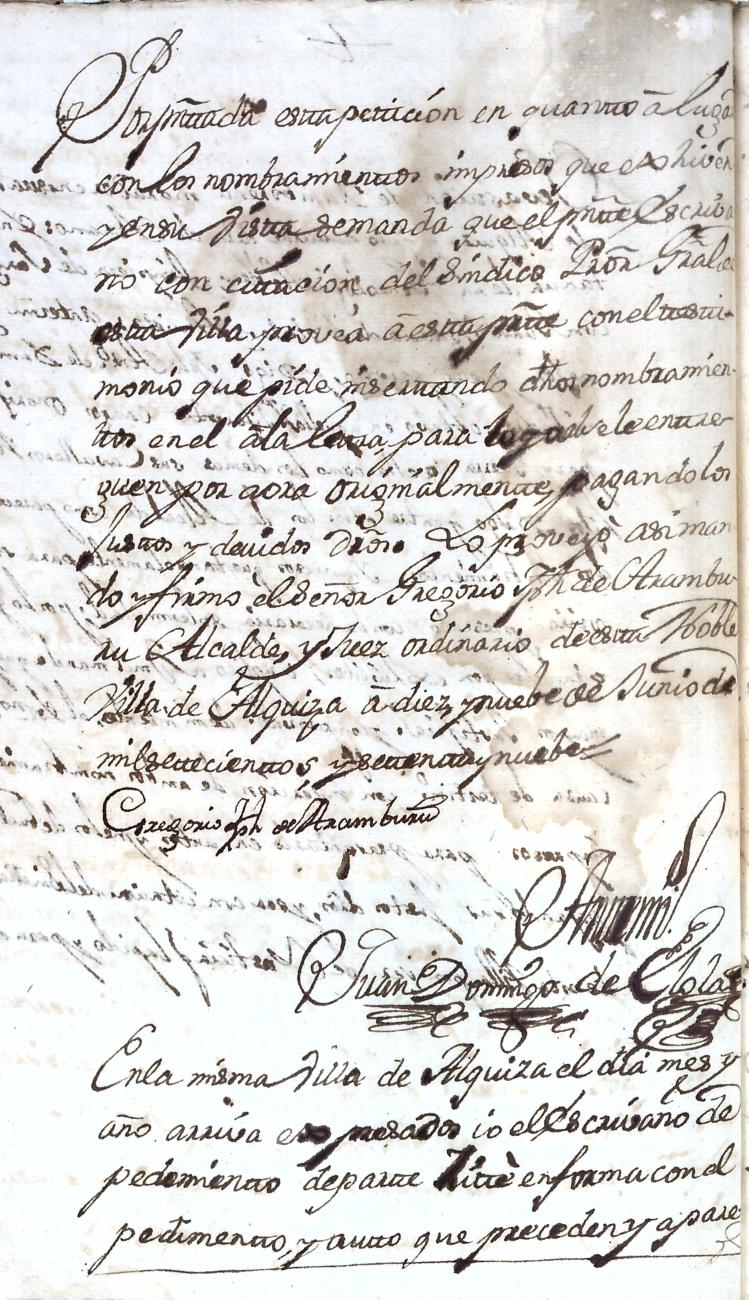 Por presᵗᵃᵈᵃ esta peticion en quantto â lugar
con los nombramienttos impresos que exhiven
y en su vistta se manda que el pñtte Escriva
no con cittacion del Síndico Prõr Gñral de
estta Villa provea â estta partte con el testti-
monio que pide insertando dhos nombramien-
ttos en el â la letra, para luego se le entre-
guen por aora originalmentte, pagando los
justtos y devidos drõs. Lo proveyò asi man
do y firmò el Señor Gregorio Jph de Arambu-
ru Alcalde, y Juez ordinario de estta Noble
Villa de Alquiza â diez, y nuebe de Junio de
mil settecienttos, y settentta y nuebe
Gregorio Jph de Aramburu
Antemi
Juan Domingo de
En la misma Villa de Alquiza el dia mes y
año arriva expresados io el Escrivano de
pedimientto de partte Zittè en forma con el
pedimentto, y autto que preceden y apare